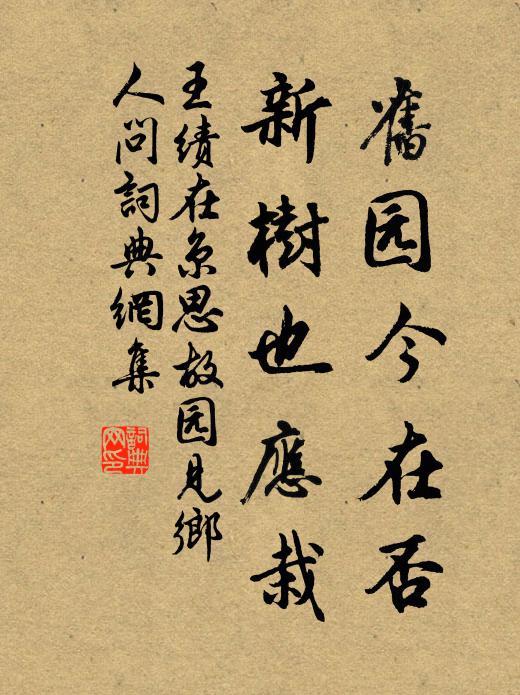 舊园今在否
新樹也應栽
王績在京思故园見鄉
人問詞典網集
詞典
网印